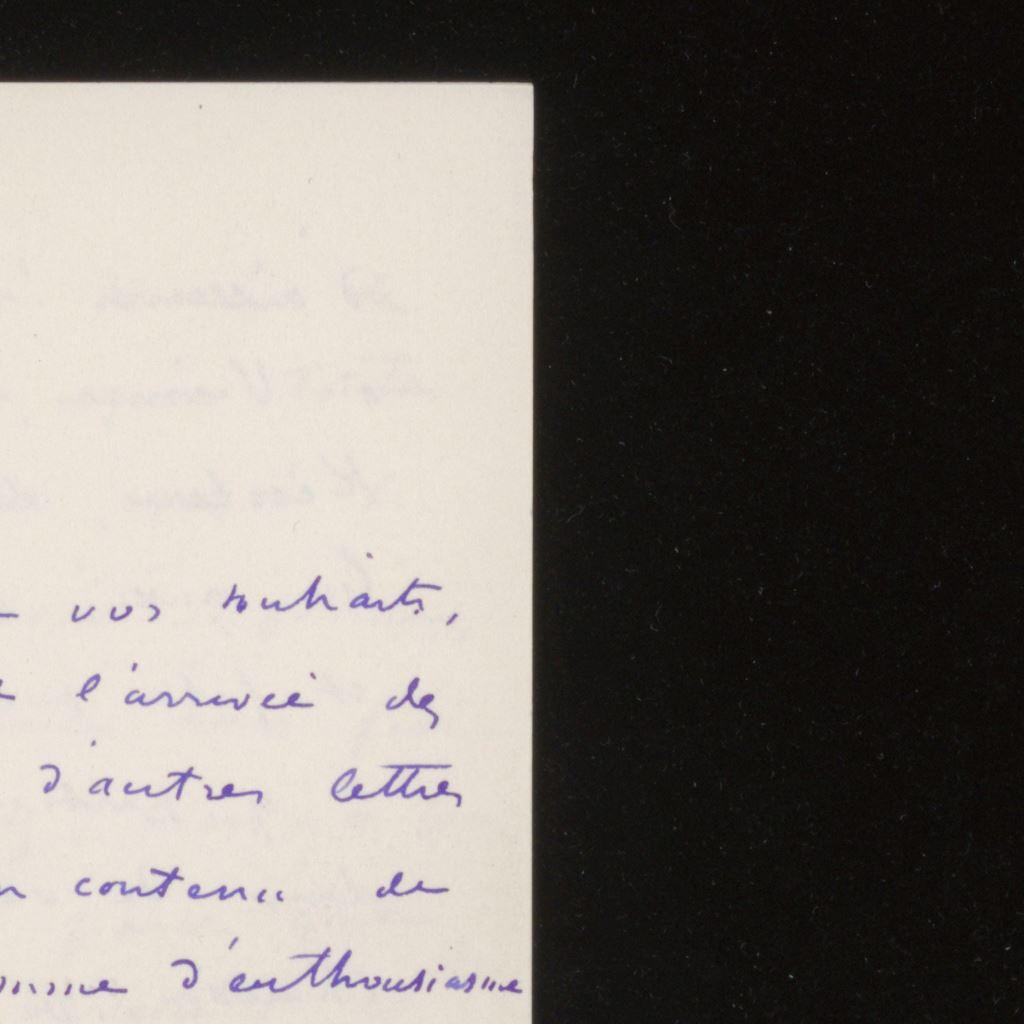 vos souhaits,
l'arrivée des
d'autres lettres
contenu de
d'enthousiasme